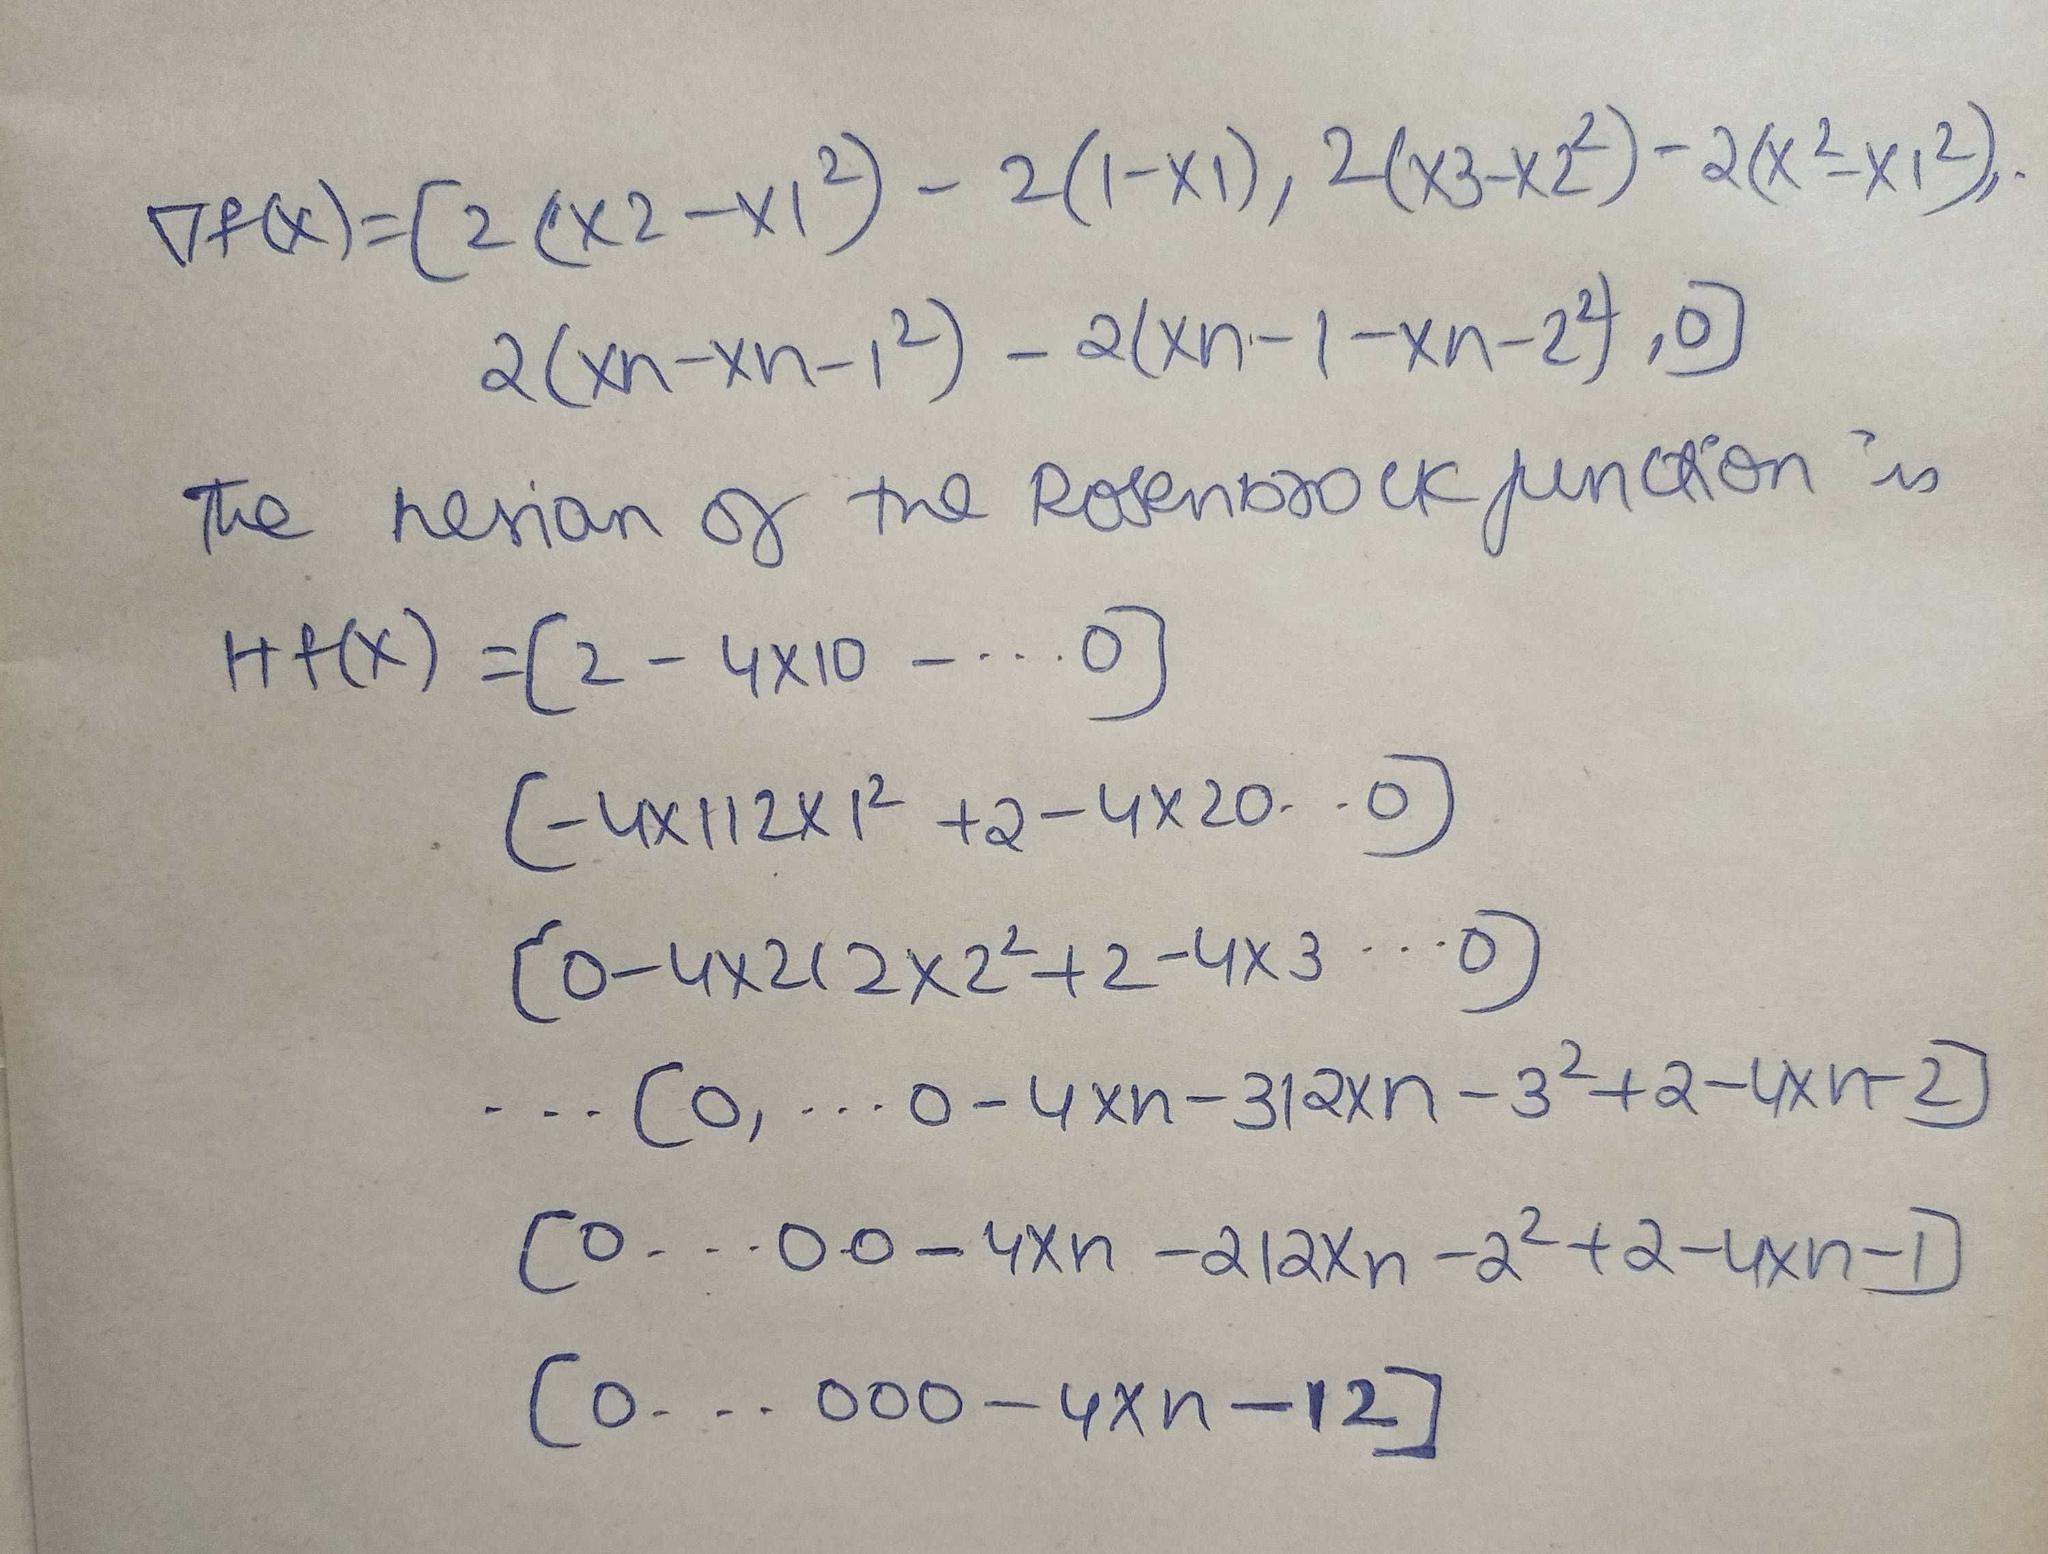 ∇f(x)=[2(x2-x1²)-2(1-x1), 2(x3-x2²)-2(x²-x1²),..
2(xn-xn-1²)-2(xn-1-xn-2²),0]
The hesian of the Rosenbrock function is
Hf(x)=[2-4x10-...0]
[-4x112x1²+2-4x20..0]
[0-4x212x2²+2-4x3...0]
...[0,...0-4xn-312xn-3²+2-4xn-2]
[0...00-4xn-212xn-2²+2-4xn-1]
[0...000-4xn-12]